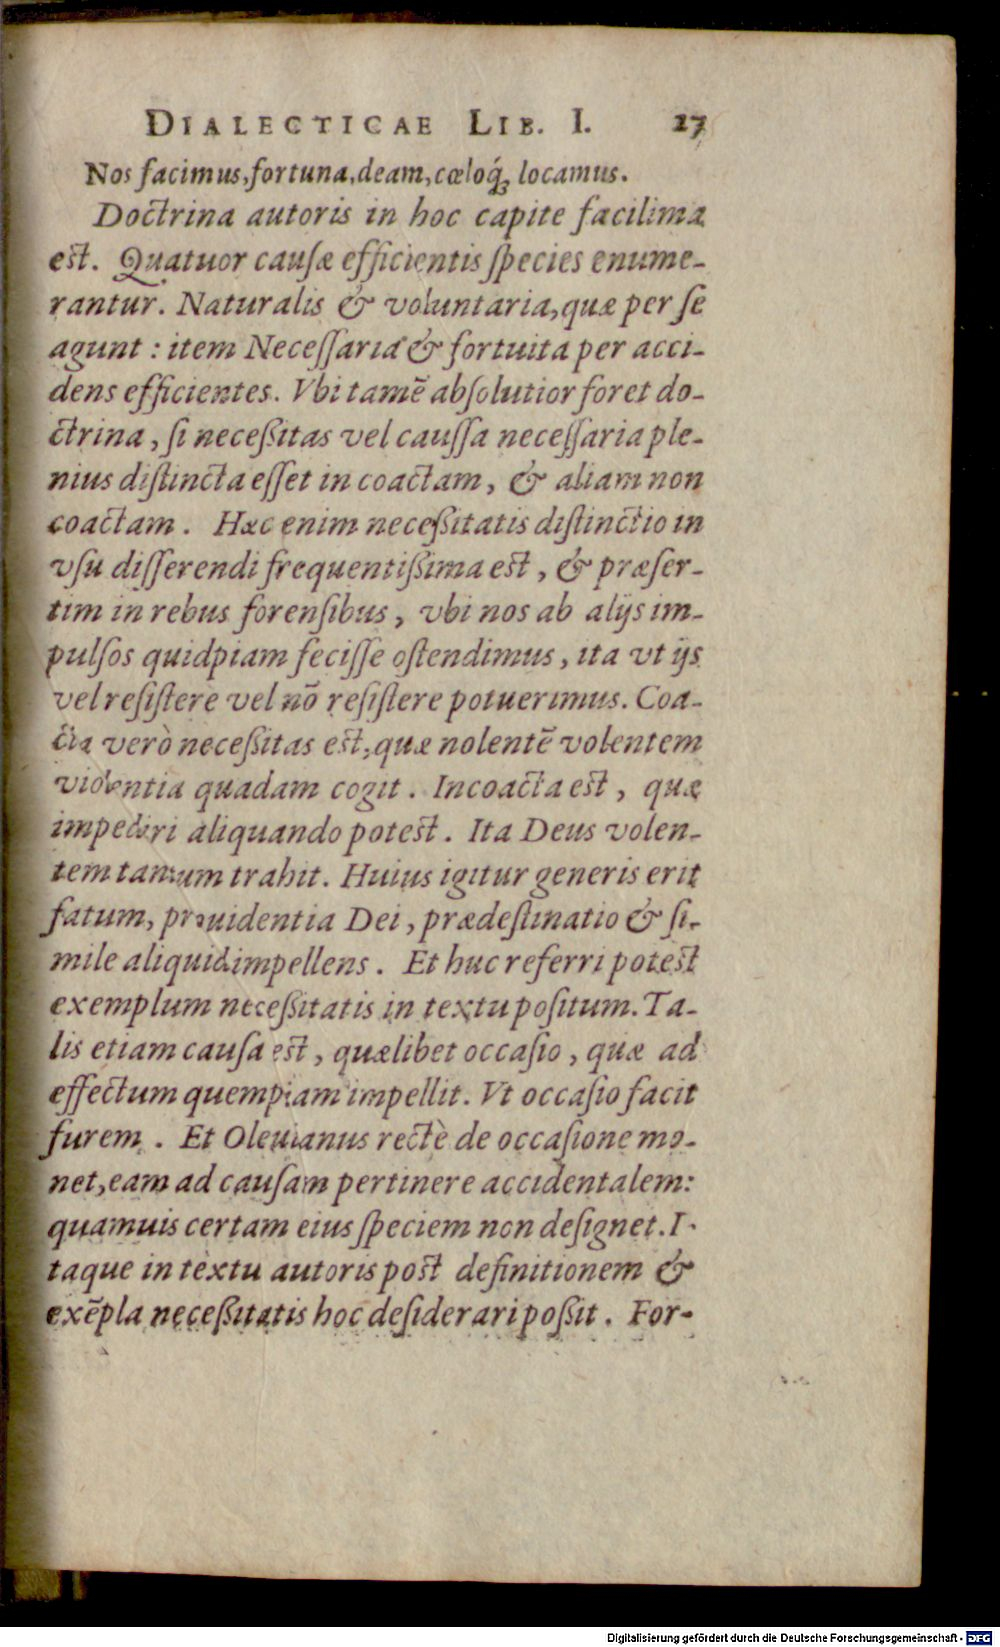 DIALECTICAE LIB. I. 27
Nos facimus, fortuna, deam, cœloq́ꝫ locamus.
Doctrina autoris in hoc capite facilima
est. Quatuor causæ efficientis species enume-
rantur. Naturalis & voluntaria, quæ per se
agunt : item Necessaria & fortuita per acci-
dens efficientes. Vbi tamẽ absolutior foret do-
ctrina, si neceßitas vel caussa necessaria ple-
nius distincta esset in coactam, & aliam non
coactam. Hæc enim neceßitatis distinctio in
vsu disserendi frequentißima est, & præser-
tim in rebus forensibus, vbi nos ab alijs im-
pulsos quidpiam fecisse ostendimus, ita vt ijs
vel resistere vel nõ resistere potuerimus. Coa-
cta verò neceßitas est, quæ nolentẽ volentem
violentia quadam cogit. Incoacta est, quæ
impediri aliquando potest. Ita Deus volen-
tem tantum trahit. Huius igitur generis erit
fatum, prouidentia Dei, prædestinatio & si-
mile aliquid impellens. Et huc referri potest
exemplum neceßitatis in textu positum. Ta-
lis etiam causa est, quælibet occasio, quæ ad
effectum quempiam impellit. Vt occasio facit
furem. Et Oleuianus rectè de occasione mo-
net, eam ad causam pertinere accidentalem:
quamuis certam eius speciem non designet. I-
taque in textu autoris post definitionem &
exẽpla neceßitatis hoc desiderari poßit. For-
Digitalisierung gefördert durch die Deutsche Forschungsgemeinschaft - DFG